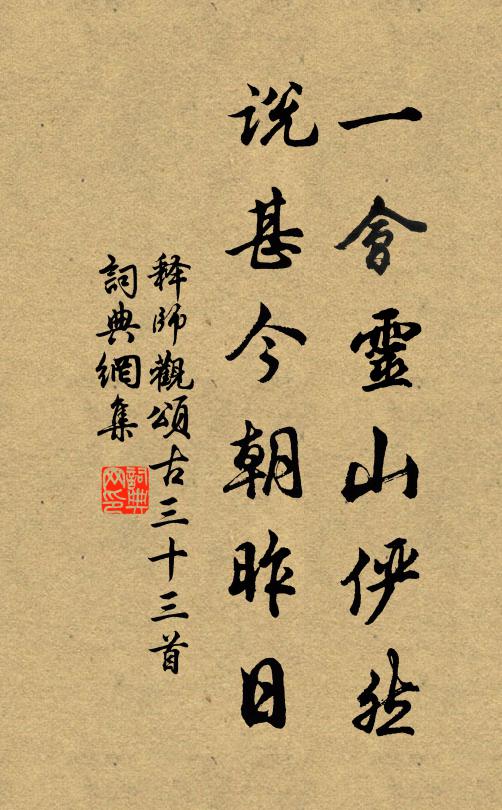 一會靈山俨然
説甚今朝昨日
释師觀頌古三十三首
詞典網集
詞典網印